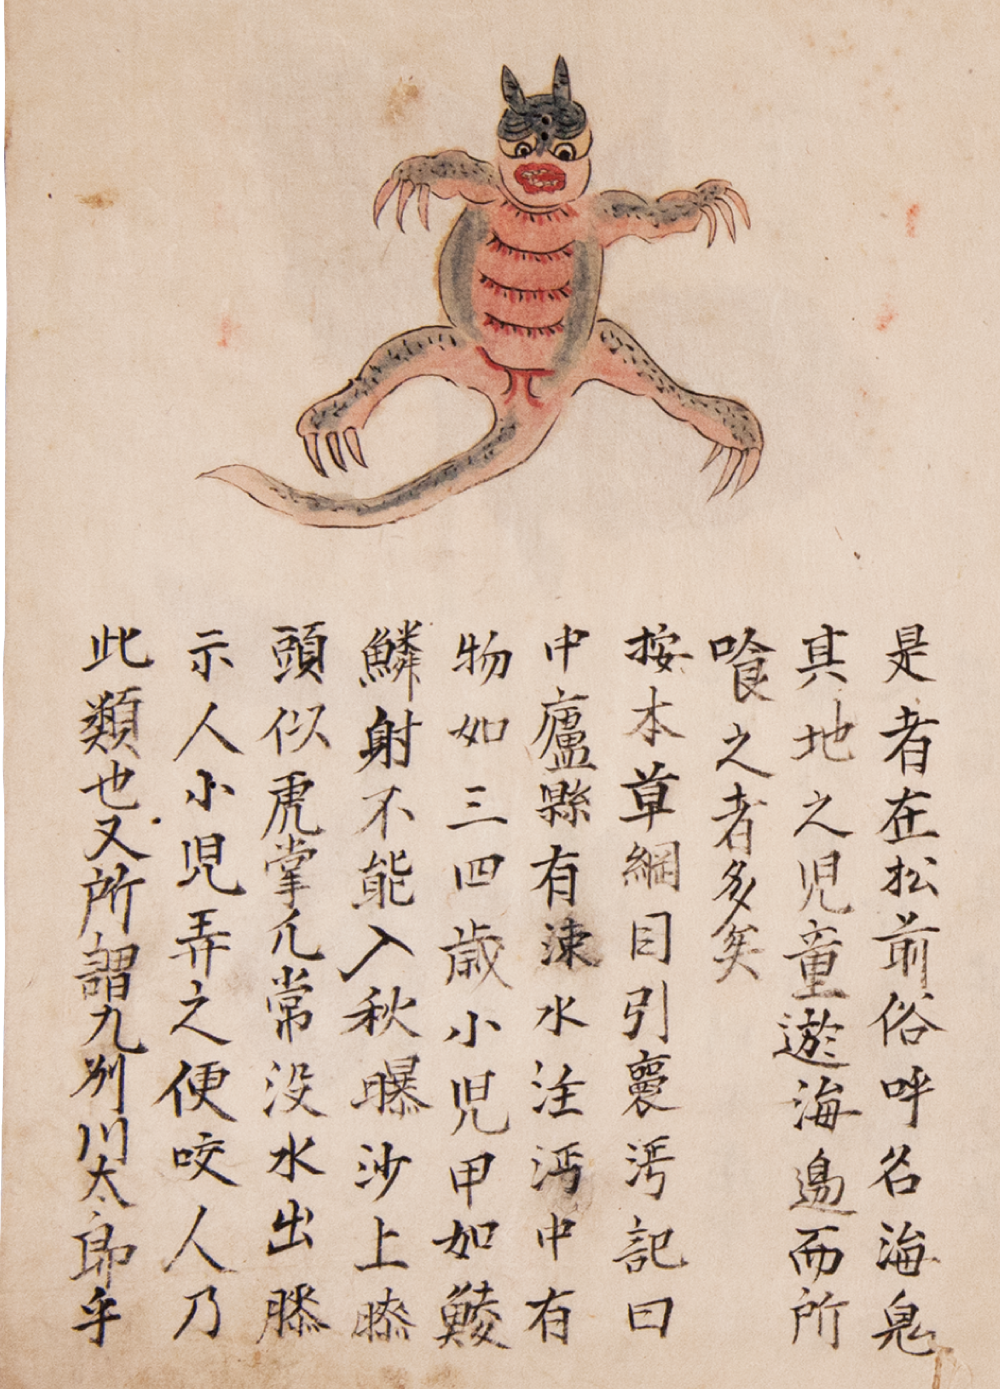 是者在松前俗呼名海鬼
其地之児童遊海邊而所
喰之者多矣
按本草綱目引襄沔記曰
中廬縣有涑水注沔中有
物如三四歳小児甲如鯪
鱗射不能入秋曝沙上膝
頭似虎掌爪常没水出膝
示人小児弄之便咬人乃
此類也又所謂九州川太郎乎